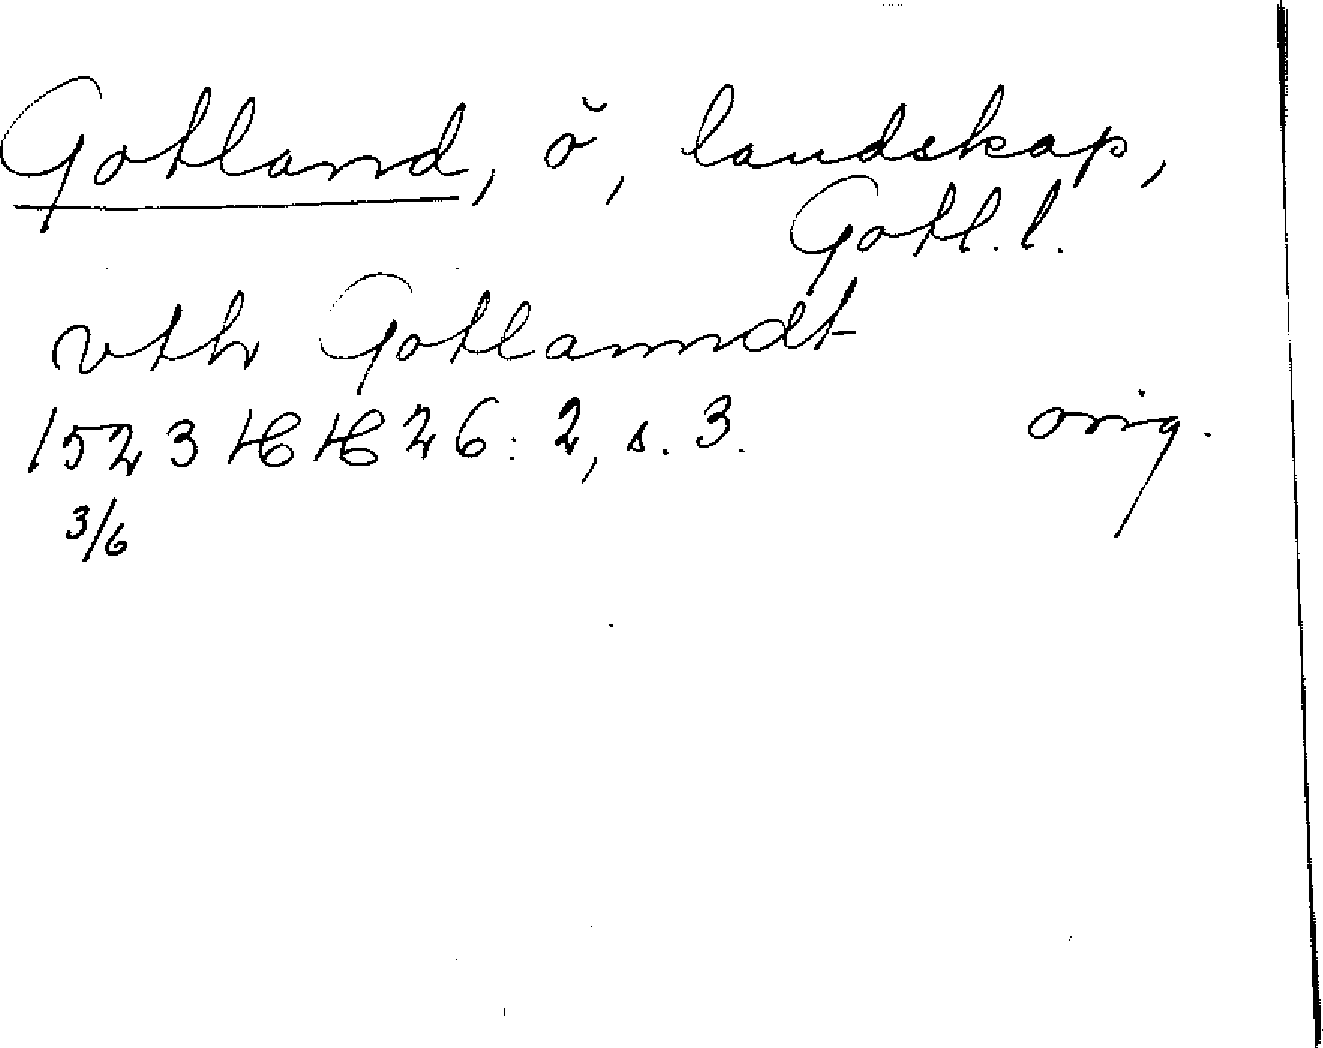 Gotland, ö, landskap,
Gotl. l.
vth Gotlanndt
1523 HH 26: 2, s. 3. orig.
3/6